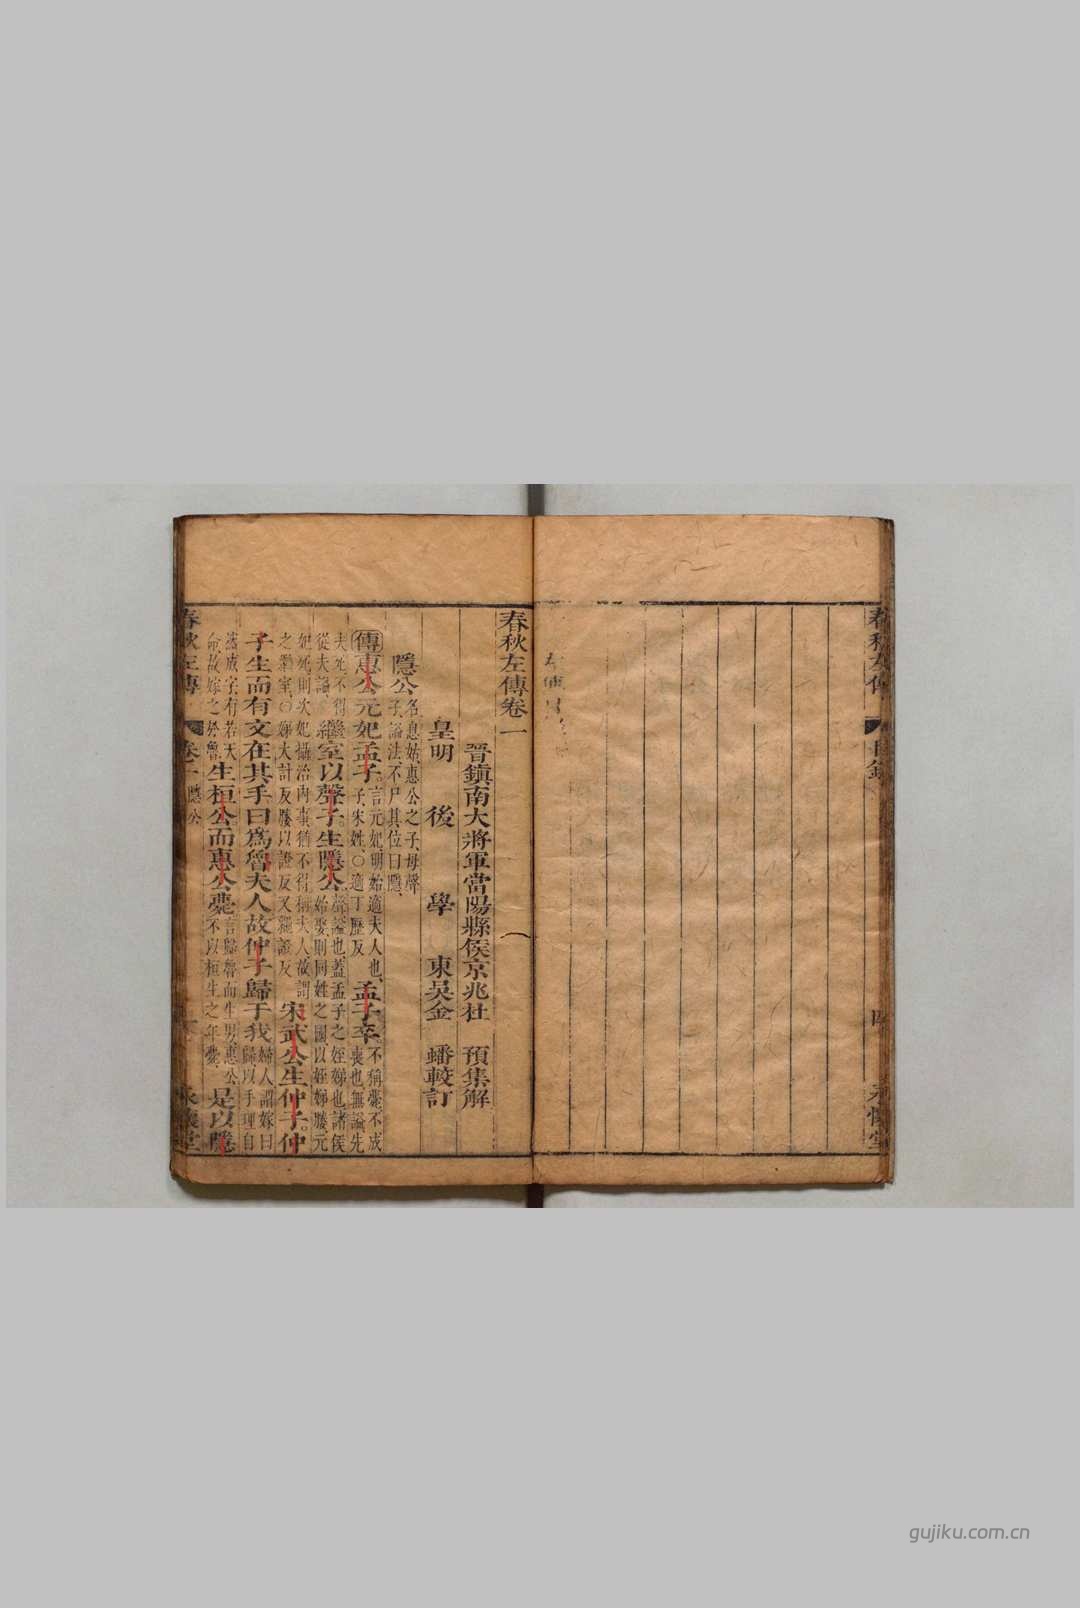 春秋左傳
目錄
四
永懷堂
春秋左傳卷一
晉鎮南大將軍當陽縣侯京兆杜 預集解
皇明 後 學 東吳金 蟠較訂
隱公名息姑惠公之子、母聲
子、謚法不尸其位曰隱、
傳惠公元妃孟子。言元妃、明始適夫人也、
子、宋姓、○適丁歷反
孟子卒。不稱薨、不成
喪也、無謚、先
夫死不得
從夫謚、
繼室以聲子。生隱公。聲謚也、蓋孟子之姪娣也、諸侯
始娶、則同姓之國、以姪娣媵、元
妃死、則次妃攝治內事、猶不得稱夫人、故謂
之繼室、○娣大計反媵以證反又繩證反
宋武公生仲子。仲
子生而有文在其手曰為魯夫人故仲子歸于我婦人謂嫁曰
歸、以手理自
然成字、有若天
命、故嫁之於魯、
生桓公而惠公薨言歸魯而生男、惠公
不以桓生之年薨、
是以隱
春秋左傳
卷一 隱公
一
永懷堂
gujiku.com.cn